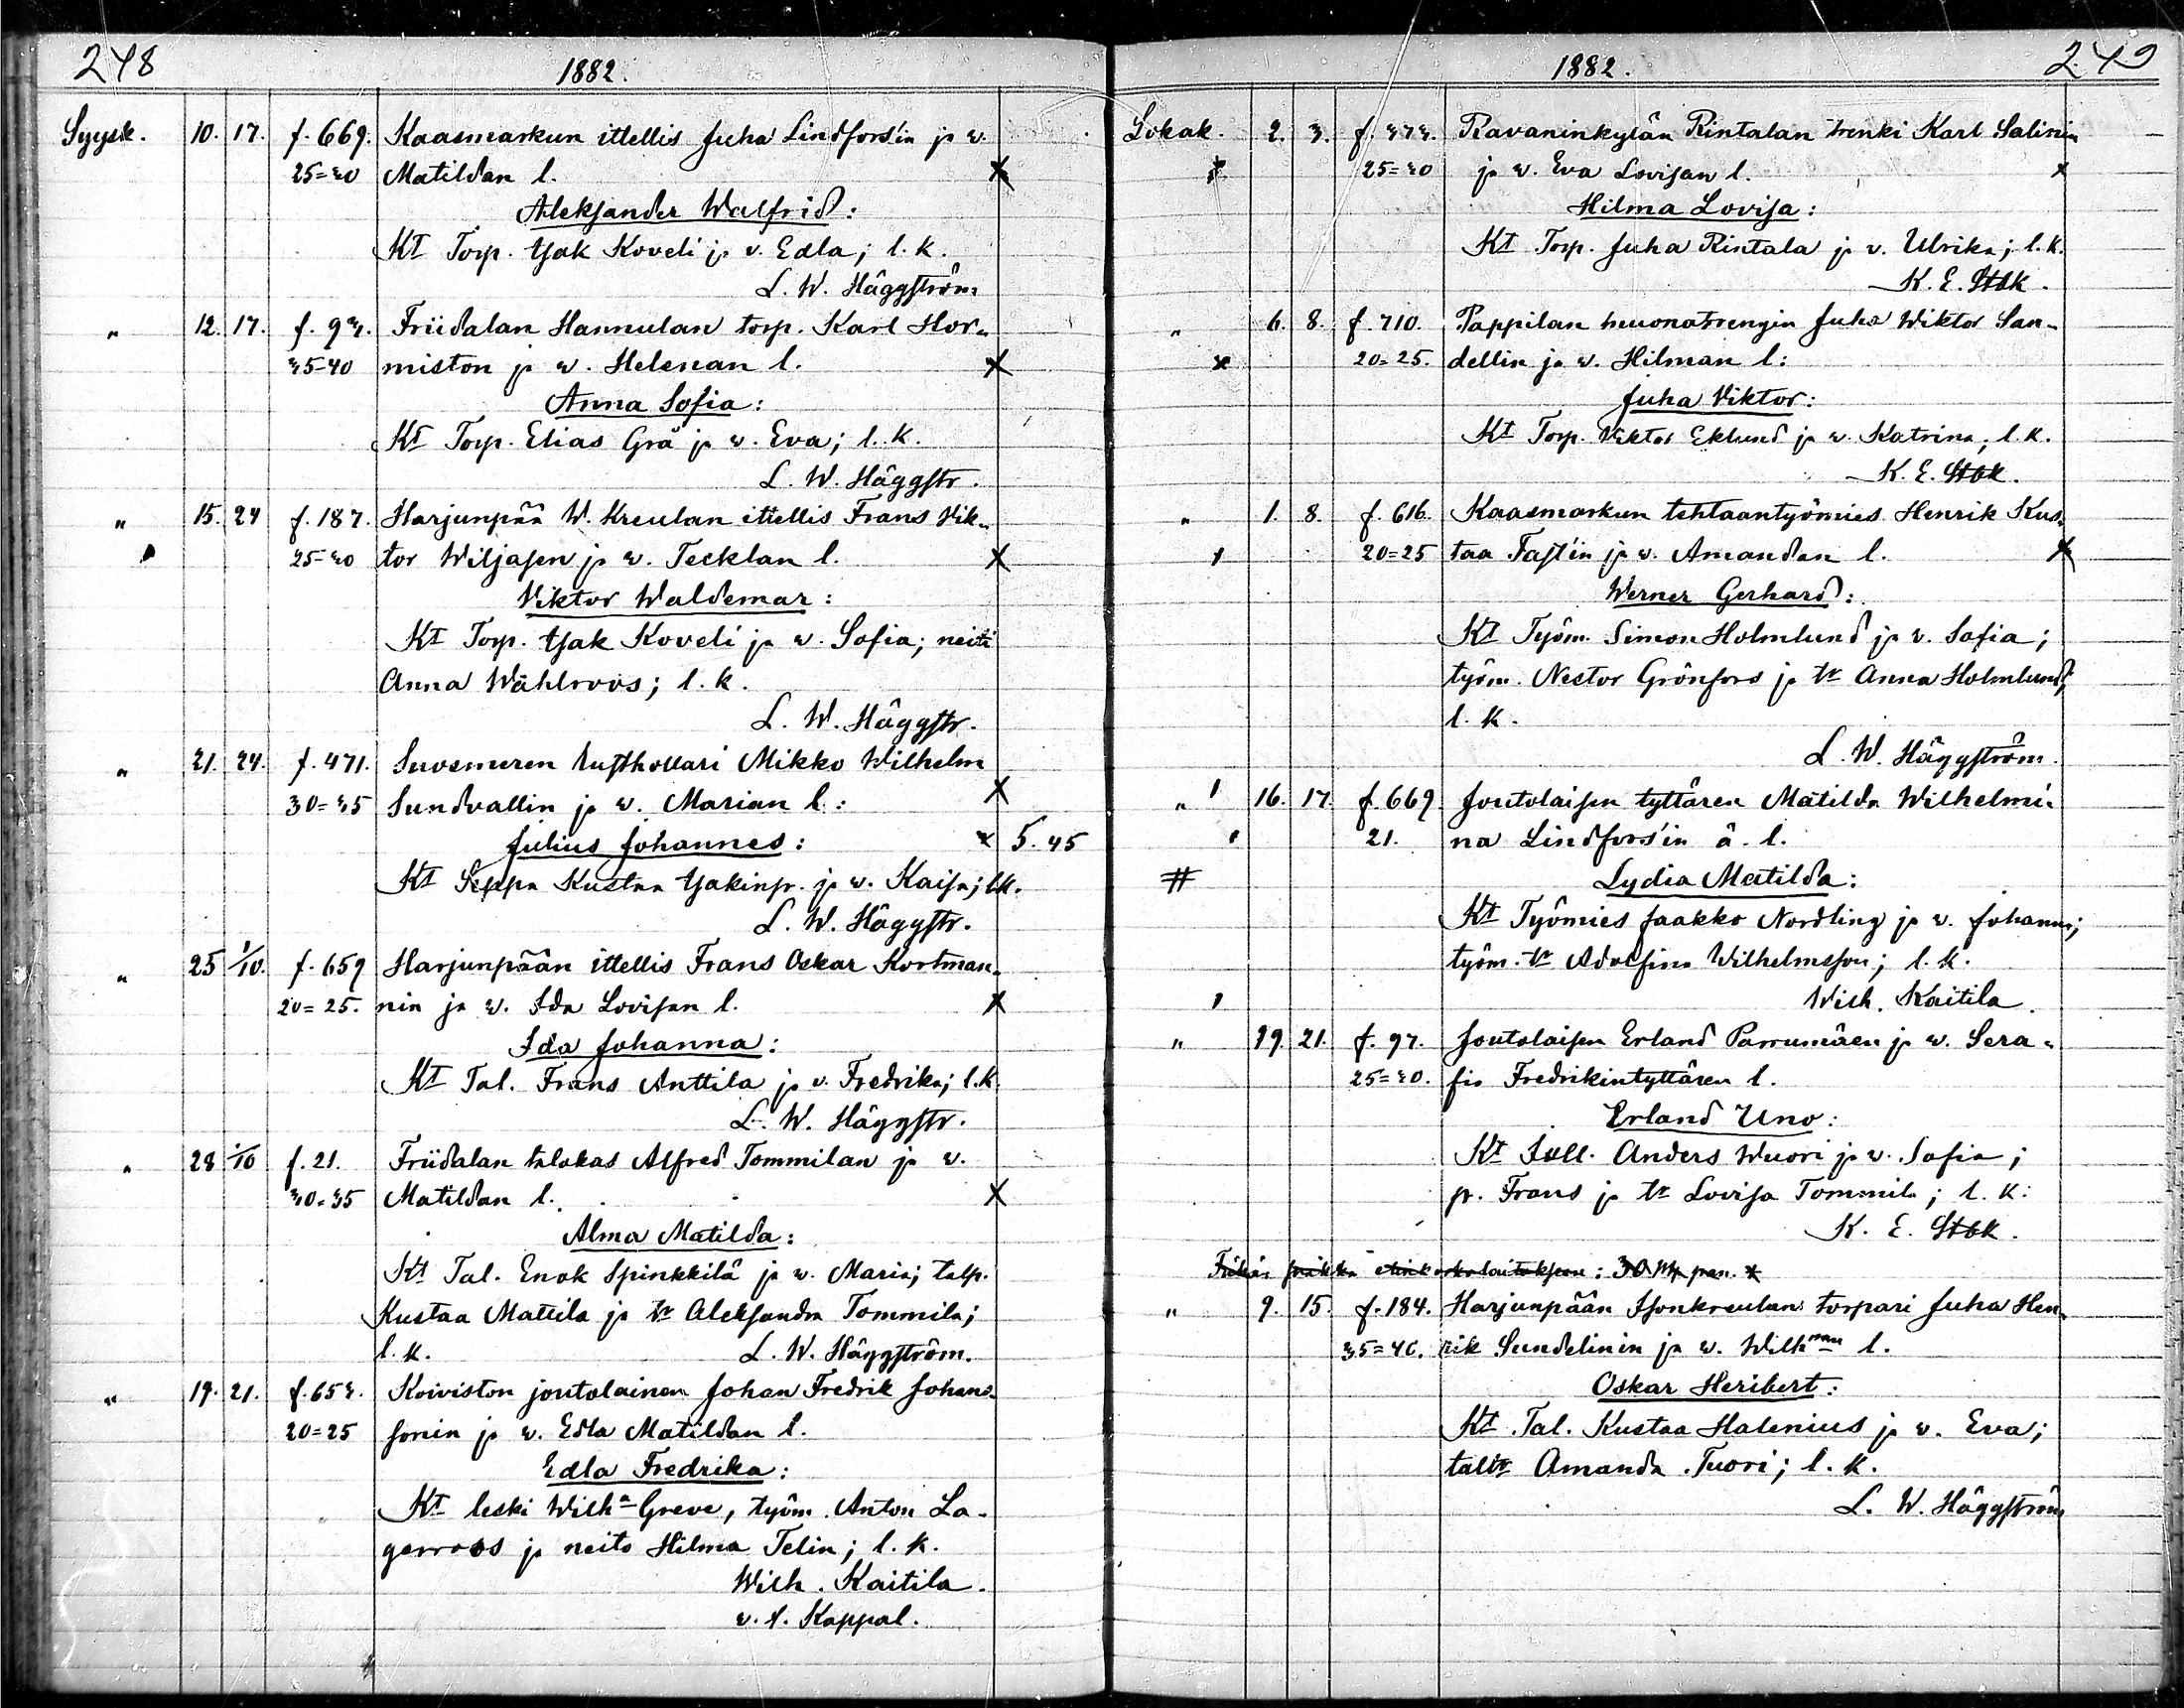 248
1882.
Syysk. 10. 17. f. 669. Kaasmarkun ittellis Juha Lindfors'in ja w.
25=30 Matildan l.
Aleksander Walfrid:
Kt Torp. Isak Koveli ja v. Edla; l. k.
L. W. Häggström
" 12. 17. f. 93. Friidalan Hannulan torp. Karl Hor-
35-40 miston ja w. Helenan l.
Anna Sofia:
Kt Torp. Elias Grä ja w. Eva; l. k.
L. W. Häggstr.
" 15. 24 f. 187. Harjunpää W. Kreulan ittellis Frans Vik-
25=30 tor Wiljasen ja w. Tecklan l.
Viktor Waldemar:
Kt Torp. Isak Koveli ja w. Sofia; neiti
Anna Wahlroos; l. k.
L. W. Häggstr.
" 21. 24. f. 471. Suosmeren rusthollari Mikko Wilhelm
30=35 Sundvallin ja w. Marian l.:
Julius Johannes: x 5. 45
Kt Seppa Kustaa Isakinp. ja w. Kaisa; l.k.
L. W. Häggstr.
" 25 1/10. f. 659 Harjunpään ittellis Frans Oskar Kortman-
20=25. nin ja w. Ida Lovisan l.
Ida Johanna:
Kt Tal. Frans Anttila ja v. Fredrika; l.k.
L. W. Häggstr.
" 28 1/10 f. 21. Friidalan talokas Alfred Tommilan ja w.
30=35 Matildan l.
Alma Matilda:
Kt Tal. Enok Spinkkilä ja w. Maria; talp.
Kustaa Mattila ja tr Aleksandra Tommila;
l. k. L. W. Häggström.
" 19. 21. f. 653. Koiviston joutolainen Johan Fredrik Johans-
20=25 sonin ja w. Edla Matildan l.
Edla Fredrika:
Kt leski Wilha Greve, työm. Anton La-
gerroos ja neito Hilma Telin; l. k.
Wilh. Kaitila.
v. t. Kappal.
249
1882.
Lokak. 2. 3. f. 373. Ravaninkylän Rintalan trenki Karl Salinin
25=30 ja w. Eva Lovisan l.
Hilma Lovisa:
Kt Torp. Juha Rintala ja v. Ulrika; l. k.
K. E. Stbk.
" 6. 8. f. 710. Pappilan huonatrengin Juha Wiktor San-
20=25. dellin ja w. Hilman l:
Juha Viktor:
Kt Torp. Viktor Eklund ja w. Katrina; l. k.
K. E. Stbk.
" 1. 8. f. 616. Kaasmarkun tehtaantyömies Henrik Kus-
20=25 taa Fast'in ja w. Amandan l.
Werner Gerhard:
Kt Työm. Simon Holmlund ja v. Sofia;
työm. Nestor Grönfors ja tr Anna Holmlund;
l. k.
L. W. Häggström.
" 16. 17. f. 669 Joutolaisen tyttären Matilda Wilhelmi-
21. na Lindfors'in ä. l.
# Lydia Matilda:
Kt Työmies Jaakko Nordling ja v. Johanna;
työm. tr Adolfina Wilhelmsson; l. k.
Wilh. Kaitila.
" 19. 21. f. 97. Joutolaisen Erland Parrumäen ja w. Sera-
25=30. fia Fredrikintyttären l.
Erland Uno:
Kt Itsll. Anders Wuori ja w. Sofia;
p. Frans ja tr Lovisa Tommila; l. k:
K. E. Stbk.
" 9. 15. f. 184. Harjunpään Isonkreulan torpari Juha Hen-
35=40. rik Sundelinin ja w. Wilhnan l.
Oskar Heribert:
Kt Tal. Kustaa Halenius ja w. Eva;
taltr Amanda Tuori; l. k.
L. W. Häggström